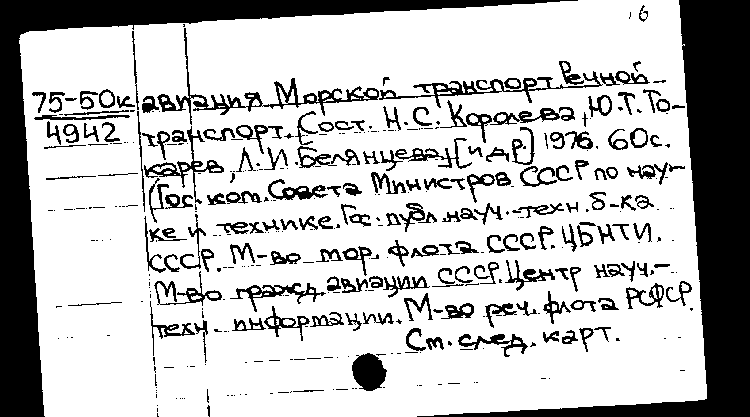 6
75-50к авиация Морской транспорт. Речной
4942 транспорт. Сост. Н.С. Королева, Ю.Т. То-
карев, Л.И. Белянцева, [и др.] 1976. 60с.
(Гос. ком. Совета Министров СССР по нау-
ке и технике. Гос. публ. науч.-техн. б-ка
СССР. М-во мор. флота СССР. ЦБНТИ.
М-во гражд. авиации СССР. Центр науч.-
техн. информации. М-во реч. флота РСФСР.
См. след. карт.